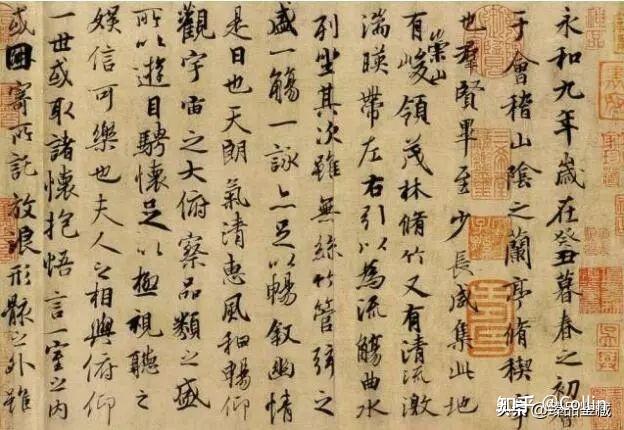 永和九年歲在癸丑暮春之初會
于會稽山陰之蘭亭脩稧事
也羣賢畢至少長咸集此地
有崇山峻領茂林脩竹又有清流激
湍暎帶左右引以為流觴曲水
列坐其次雖無絲竹管弦之
盛一觴一詠亦足以暢敘幽情
是日也天朗氣清惠風和暢仰
觀宇宙之大俯察品類之盛
所以遊目騁懷足以極視聽之
娛信可樂也夫人之相與俯仰
一世或取諸懷抱悟言一室之內
或因寄所託放浪形骸之外雖
知乎 @Collin
@臻品金藏